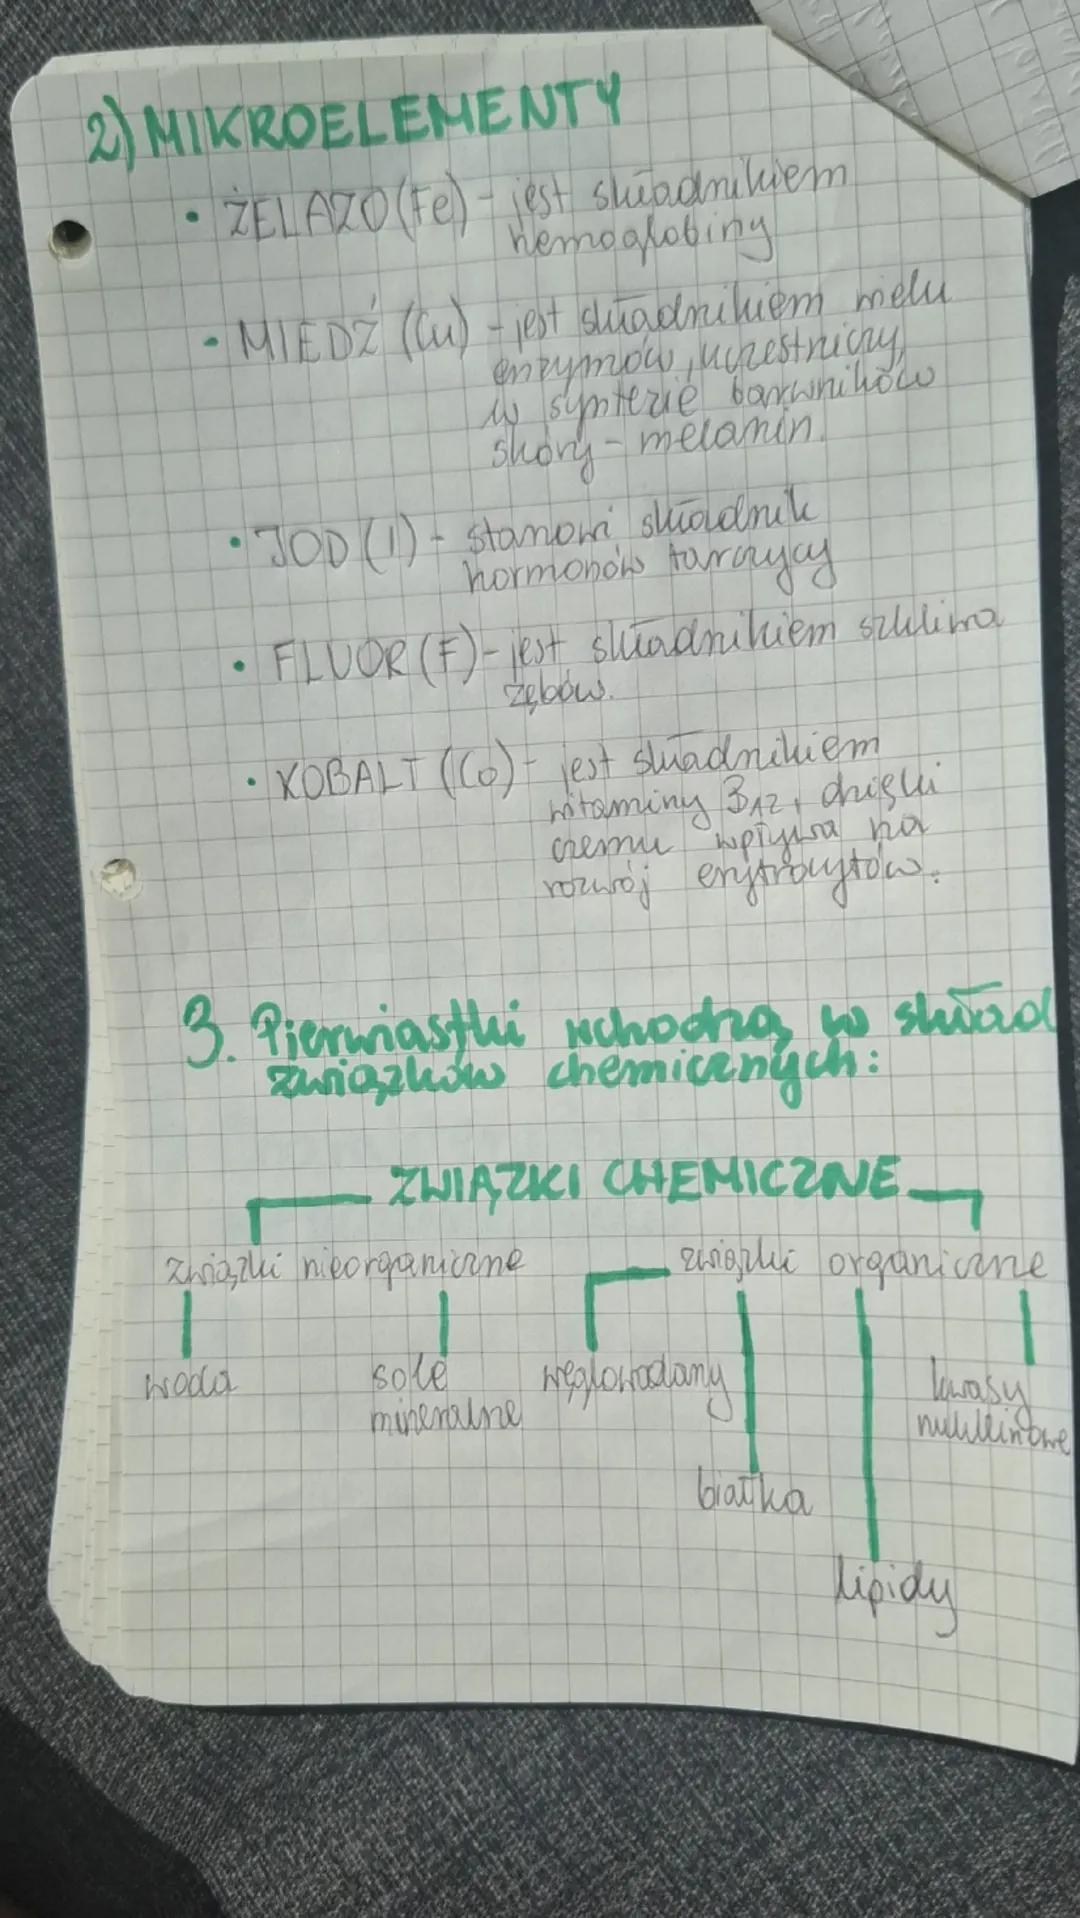 2) MIKROELEMENTY
• ŻELAZO (Fe) - jest składnikiem
hemoglobiny
• MIEDŹ (Cu) - jest składnikiem wielu
enzymów, uczestniczy
w syntezie barwników
skóry - melanin.
• JOD (I) - stanowi składnik
hormonów tarczycy
• FLUOR (F) - jest składnikiem szkliwa
zębów.
• KOBALT (Co) - jest składnikiem
witaminy B12, dzięki
czemu wpływa na
rozwój erytrocytów.
3. Pierwiastki wchodzą w skład
związków chemicznych:
ZWIĄZKI CHEMICZNE
związki nieorganiczne związki organiczne
woda sole węglowodany kwasy
mineralne nukleinowe
białka
lipidy